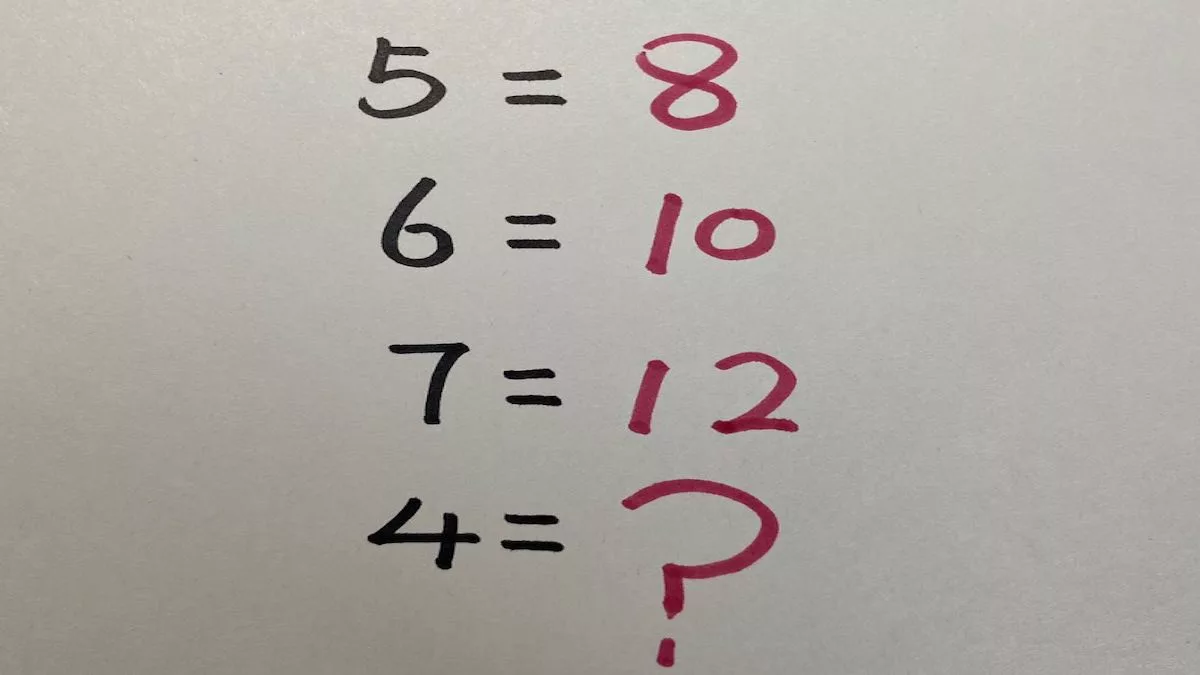 5 = 8
6 = 10
7 = 12
4 = ?